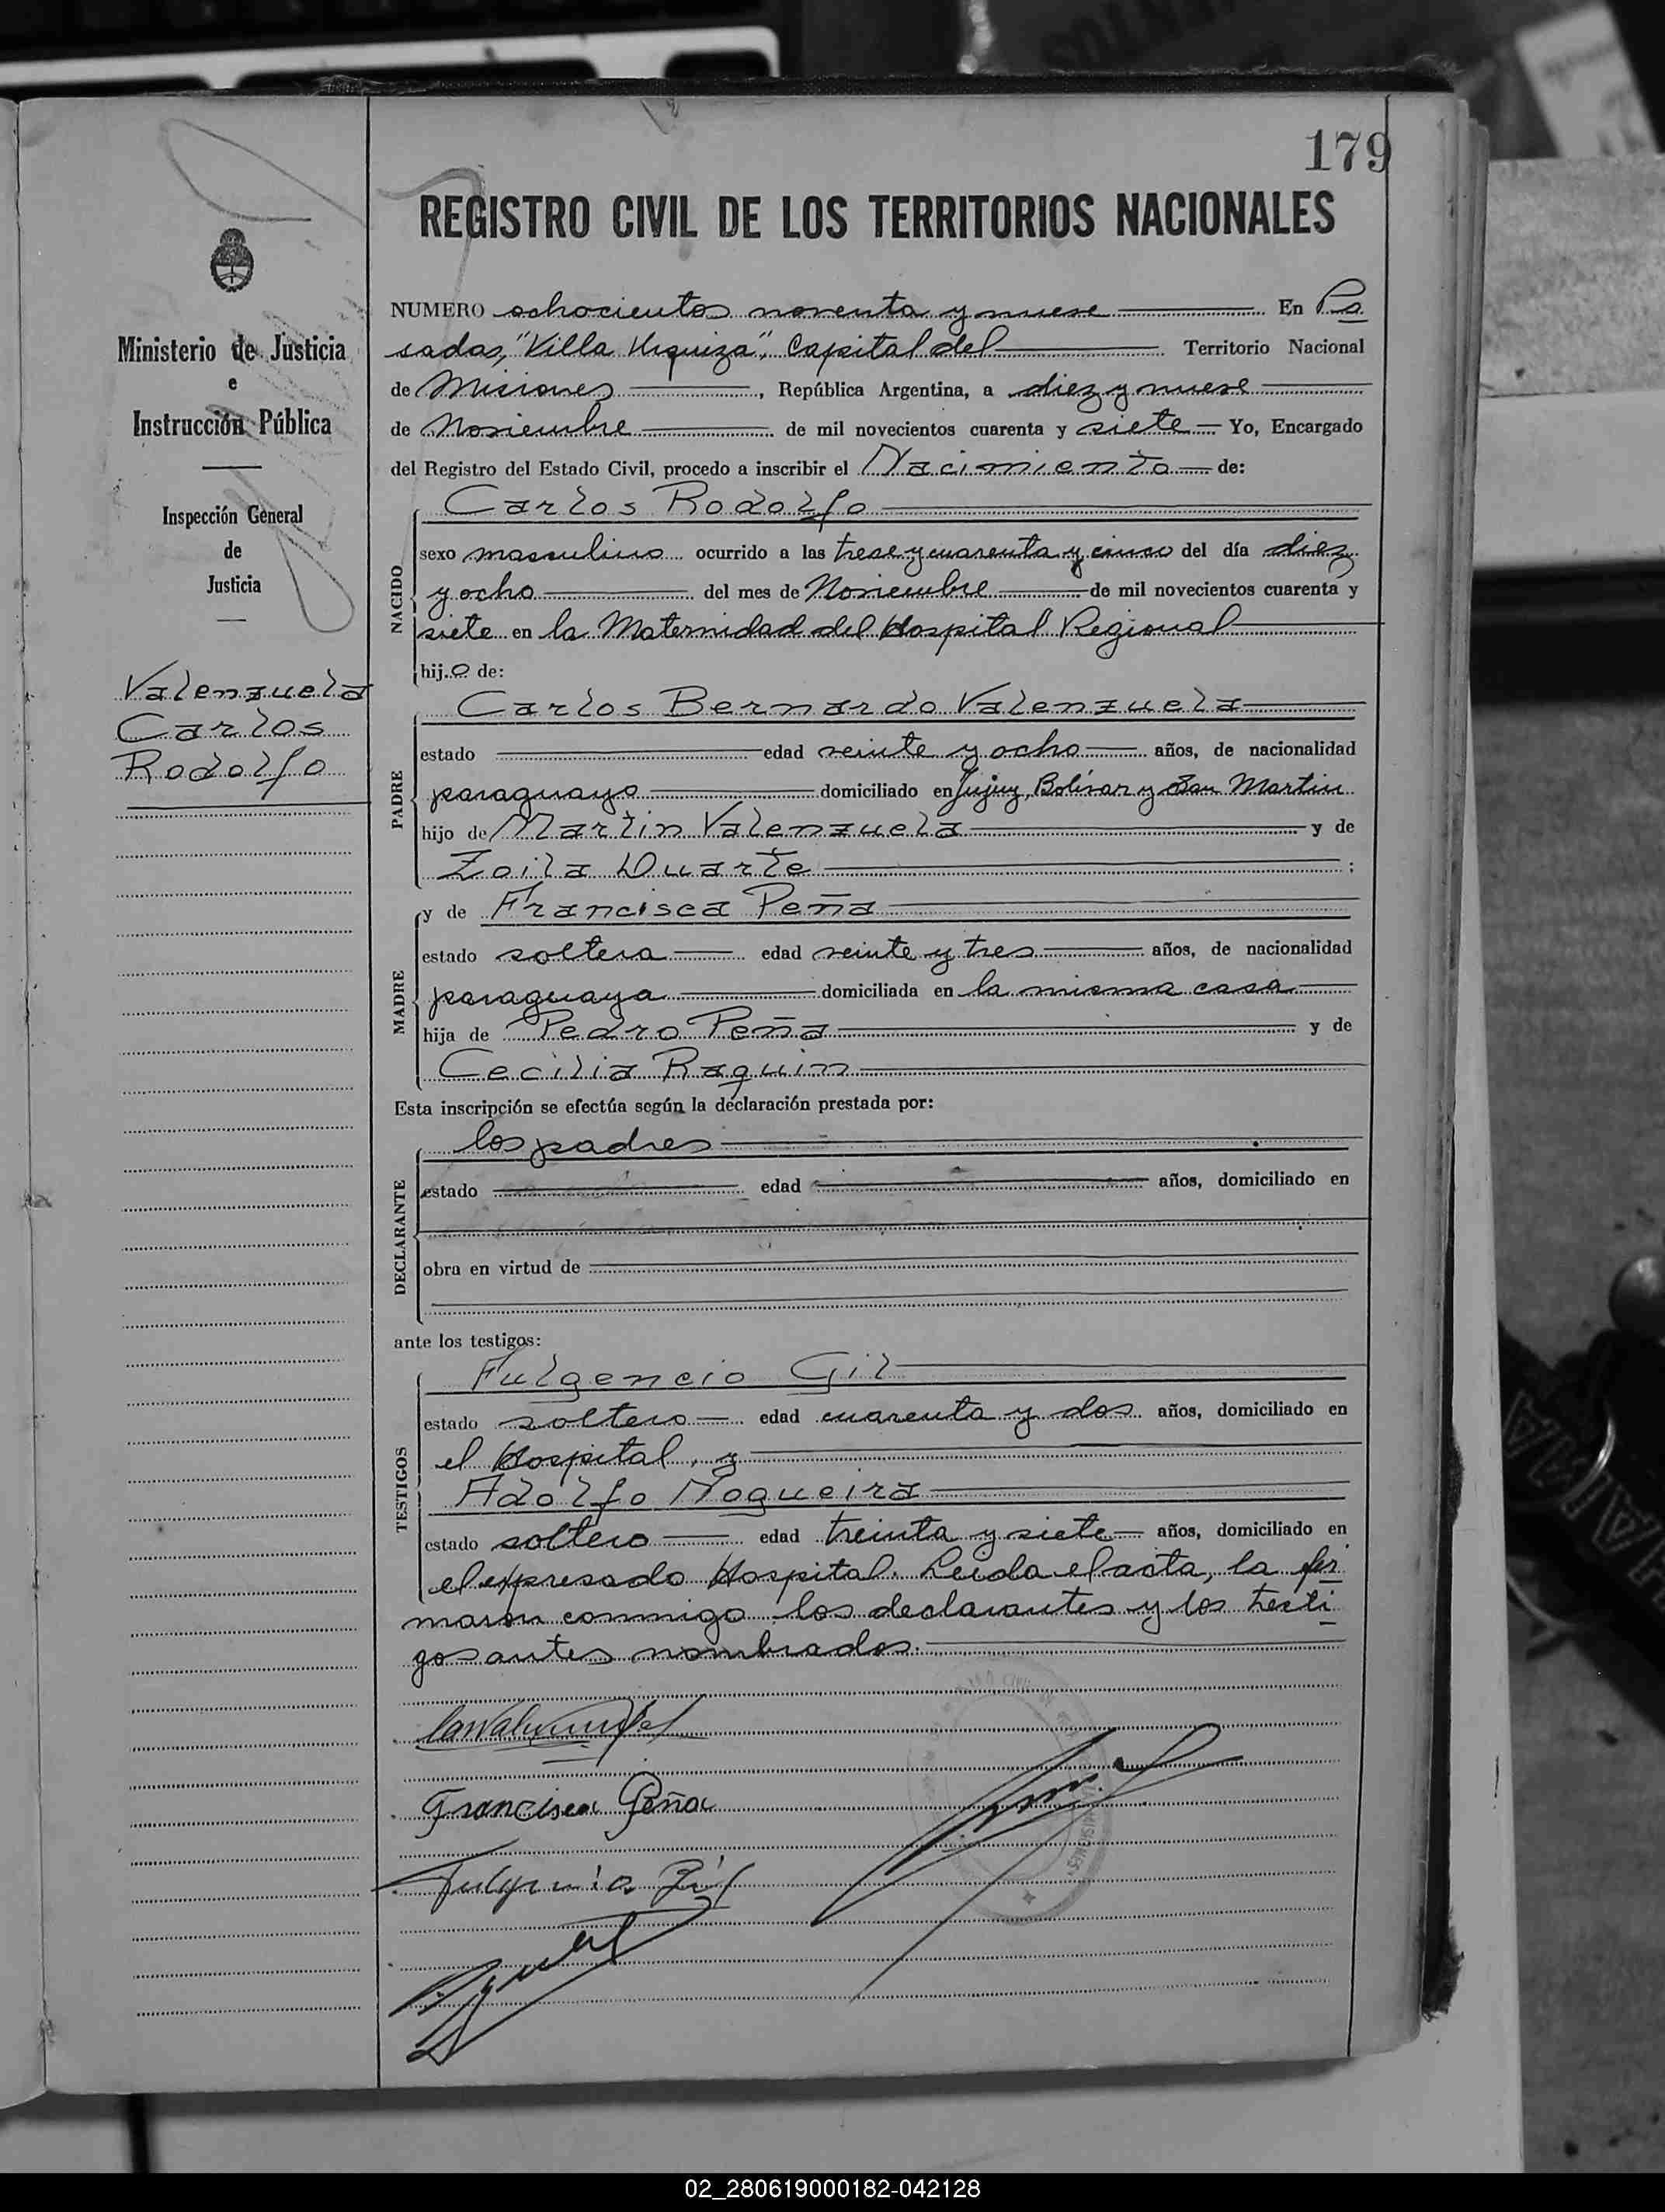 179
REGISTRO CIVIL DE LOS TERRITORIOS NACIONALES
Ministerio de Justicia
e
Instrucción Pública
Inspección General
de
Justicia
Valenzuela
Carlos
Rodolfo
NUMERO ochocientos noventa y nueve En Po
sadas, "Villa Urquiza", Capital del Territorio Nacional
de Misiones, República Argentina, a diez y nueve
de Noviembre de mil novecientos cuarenta y siete Yo, Encargado
del Registro del Estado Civil, procedo a inscribir el Nacimiento de:
Carlos Rodolfo
NACIDO
sexo masculino ocurrido a las trece y cuarenta y cinco del día diez
y ocho del mes de Noviembre de mil novecientos cuarenta y
siete en la Maternidad del Hospital Regional
hijo de:
Carlos Bernardo Valenzuela
PADRE
estado edad veinte y ocho años, de nacionalidad
paraguayo domiciliado en Jujuy, Bolívar y San Martin
hijo de Martin Valenzuela y de
Zoila Duarte ;
y de Francisca Peña
MADRE
estado soltera edad veinte y tres años, de nacionalidad
paraguaya domiciliada en la misma casa
hija de Pedro Peña y de
Cecilia Raquin
Esta inscripción se efectúa según la declaración prestada por:
los padres
DECLARANTE
estado edad años, domiciliado en
obra en virtud de
ante los testigos:
Fulgencio Gil
TESTIGOS
estado soltero edad cuarenta y dos años, domiciliado en
el Hospital, y
Adolfo Nogueira
estado soltero edad treinta y siete años, domiciliado en
el expresado Hospital. Leida el acta, la fir
maron conmigo los declarantes y los testi
gos antes nombrados.
Francisca Peña
Fulgencio Gil
MISIONES
02_280619000182-042128